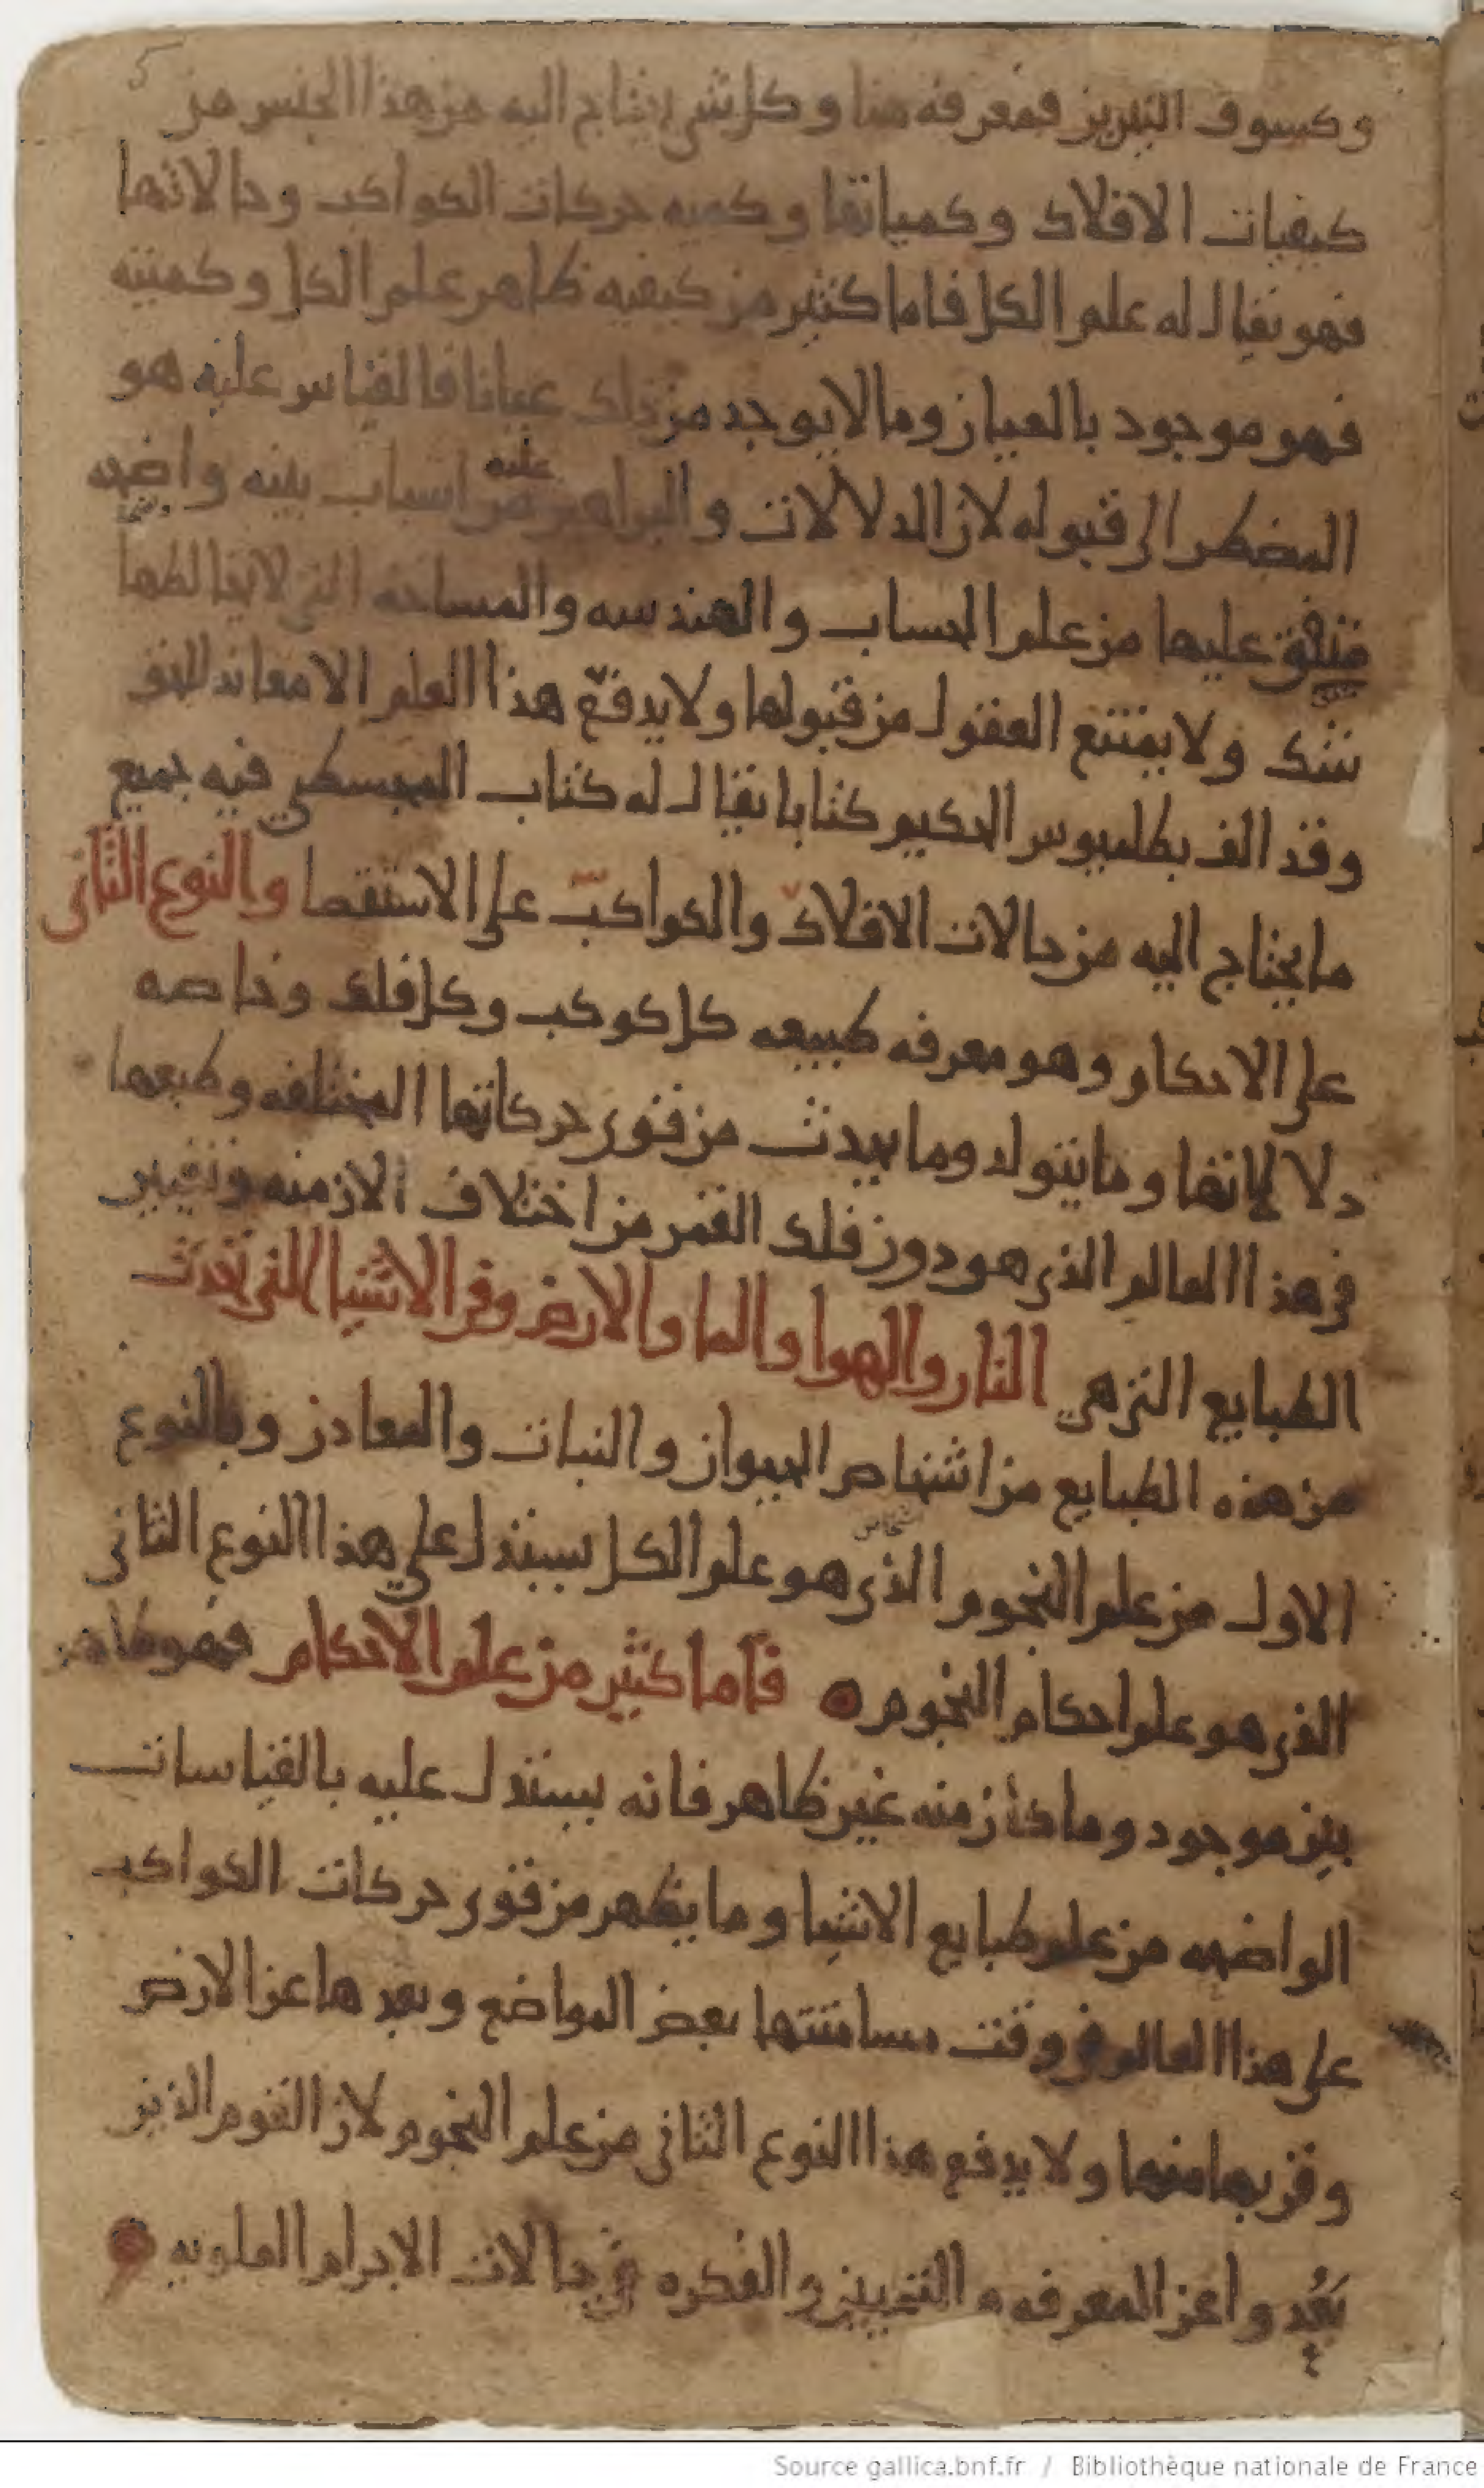 5
وكسوف النيرين فمعرفه هذا وكل شي يحتاج اليه من هذا الجنس من
كيفيات الافلاك وكمياتها وكميه حركات الكواكب وحالاتها
فهو يقال له علم الكل فاما كثير من كيفيه ظاهر علم الكل وكميته
فهو موجود بالعيان وما لا يوجد من ذلك عيانا فالقياس عليه هو
المضطر الى قبوله لان الدلالات والبراهين عليه من اسباب بينه واضحه
متفق عليها من علم الحساب والهندسه والمساحه التي لا يخالطها
شك ولا يمتنع العقول من قبولها ولا يدفع هذا العلم الا معاند للحق
وقد الف بطلميوس الحكيم كتابا يقال له كتاب المجسطي فيه جميع
ما يحتاج اليه من حالات الافلاك والكواكب على الاستقصا والنوع الثاني
علم الاحكام وهو معرفه طبيعه كل كوكب وكل فلك وخاصه
دلالاتها وما يتولد وما يحدث من قوى حركاتها المختلفه وطبعها
في هذا العالم الذي هو دون فلك القمر من اختلاف الازمنه وتغيير
الطبايع التي هي النار والهوا والما والارض وفي الاشيا التي تحدث
من هذه الطبايع من اشخاص الحيوان والنبات والمعادن وبالنوع
اشخاص
الاول من علم النجوم الذي هو علم الكل يستدل على هذا النوع الثاني
الذي هو علم احكام النجوم فاما كثير من علم الاحكام فهو ظاهر
بين موجود وما كان منه غير ظاهر فانه يستدل عليه بالقياسات
الواضحه من علم طبايع الاشيا وما يظهر من قوى حركات الكواكب
على هذا العالم في وقت مسامتتها بعض المواضع وبعدها عن الارض
وقربها منها ولا يدفع هذا النوع الثاني من علم النجوم الا القوم الذين
بعدوا عن المعرفه التمييز والفكره في حالات الاجرام العلويه
Source gallica.bnf.fr / Bibliothèque nationale de France